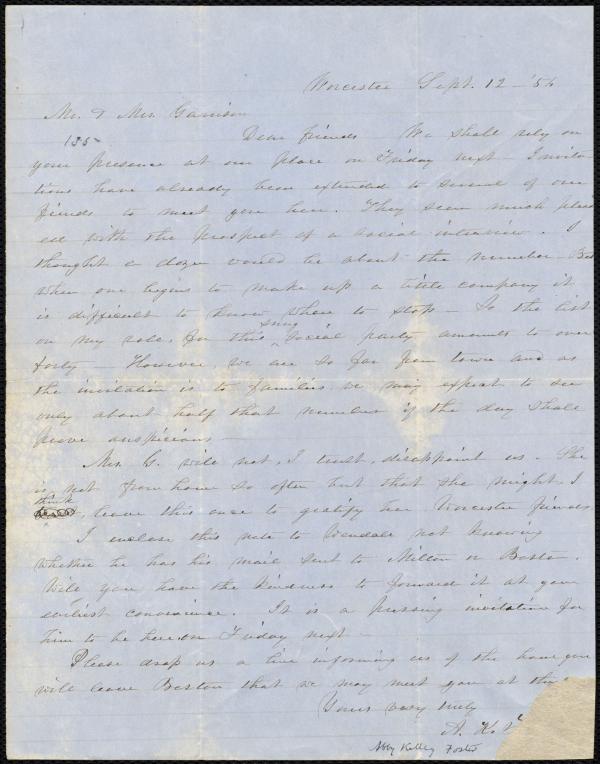 Worcester Sept. 12 - '56
Mr. & Mrs. Garrison
155
Dear friends We shall rely on
your presence at our place on Friday next - Invita
tions have already been extended to several of our
friends to meet you here. They seem much pleas
ed with the prospect of a social interview. I
thought a dozen would be about the number But
when one begins to make up a little company it
is difficult to know where to stop - So the list
on my side, for this snug social party amounts to over
forty - However, we are so far from town and as
the invitation is to families, we may expect to see
only about half that number if the day shall
prove auspicious -
Mrs. G. will not, I trust, disappoint us. She
is not from home so often but that she might, I
think, leave this once to gratify her Worcester friends
I enclose this note to Wendell not knowing
whether he has his mail sent to Milton or Boston.
Will you have the kindness to forward it at your
earliest convenience. It is a pressing invitation for
him to be here on Friday next -
Please drop us a line informing us of the hour you
will leave Boston that we may meet you at the
Yours very truly
A. K.
Abby Kelley Foster